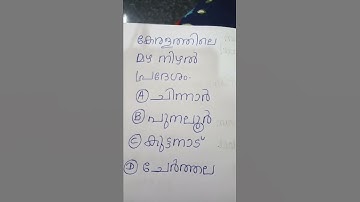 കേരളത്തിലെ
മഴ നിഴൽ
പ്രദേശം.
Ⓐ ചിന്നാർ
Ⓑ പുനലൂർ
Ⓒ കുട്ടനാട്
Ⓓ ചേർത്തല